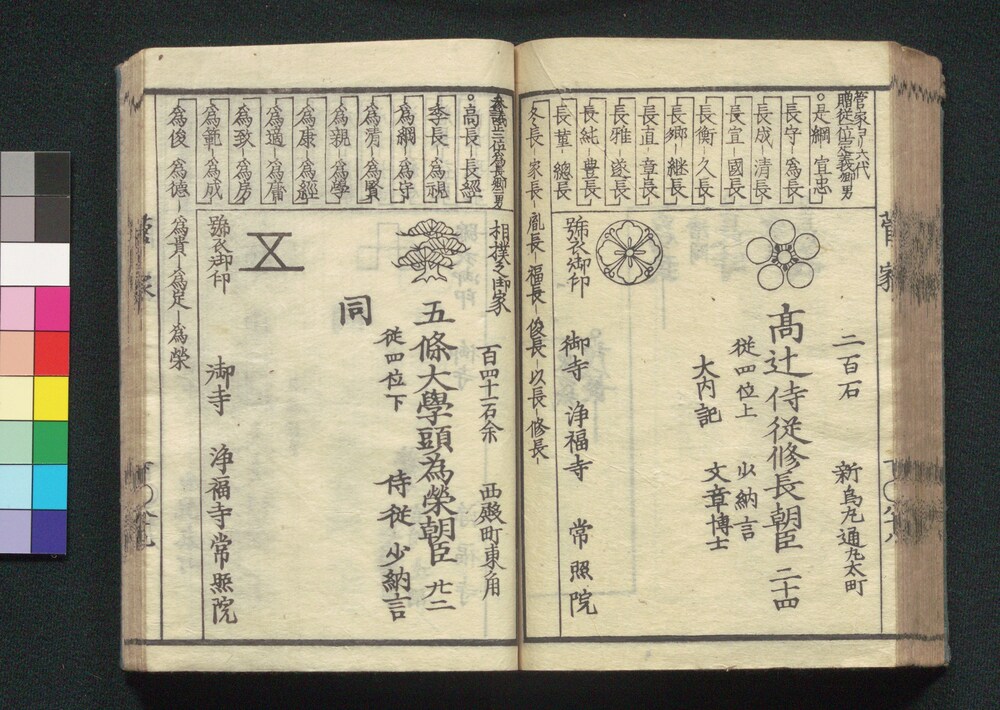 菅家ヨリ六代
贈従一位定義卿男
○是綱 宜忠
長守 為長
長成 清長
長宣 國長
長衡 久長
長郷 継長
長直 章長
長雅 遂長
長純 豊長
長菫 總長
冬長 家長 胤長 福長 俊長 以長 修長
二百石 新烏丸通丸太町
髙辻侍従修長朝臣 二十四
従四位上 少納言
大内記 文章博士
御寺 浄福寺 常照院
號衣御印
菅家
参議正三位為長卿男
○高長 長經
季長 為視
為綱 為守
為清 為賢
為親 為學
為康 為經
為適 為庸
為致 為房
為範 為成
為俊 為德 為貴 為定 為榮
相撲之御家
百四十一石余 西殿町東角
五條大學頭為榮朝臣 廿二
従四位下 侍従 少納言
同
號衣御印
御寺 浄福寺常照院